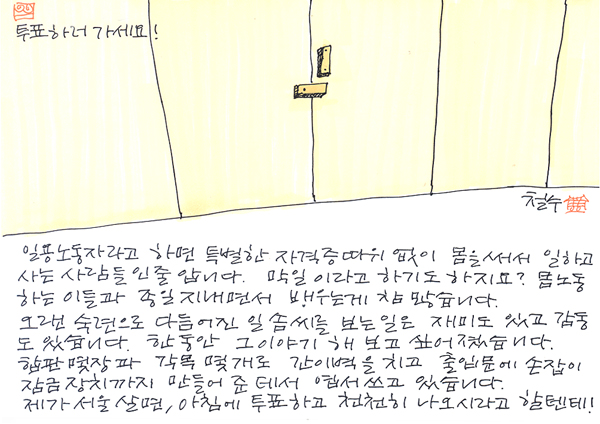 투표하러 가세요!
철수
일용노동자라고 하면 특별한 자격증따위 없이 몸을써서 일하고
사는 사람들인줄 압니다. 막일이라고 하기도 하지요? 몸노동
하는 이들과 종일 지내면서 배우는게 참 많습니다.
오랜 숙련으로 다듬어진 일솜씨를 보는일은 재미도 있고 감동
도 있습니다. 한동안 그이야기 해 보고 싶어졌습니다.
합판몇장과 각목 몇개로 간이벽을 치고 출입문에 손잡이
잠금장치까지 만들어 준데서 엽서쓰고 있습니다.
제가 서울 살면, 아침에 투표하고 천천히 나오시라고 할텐데!